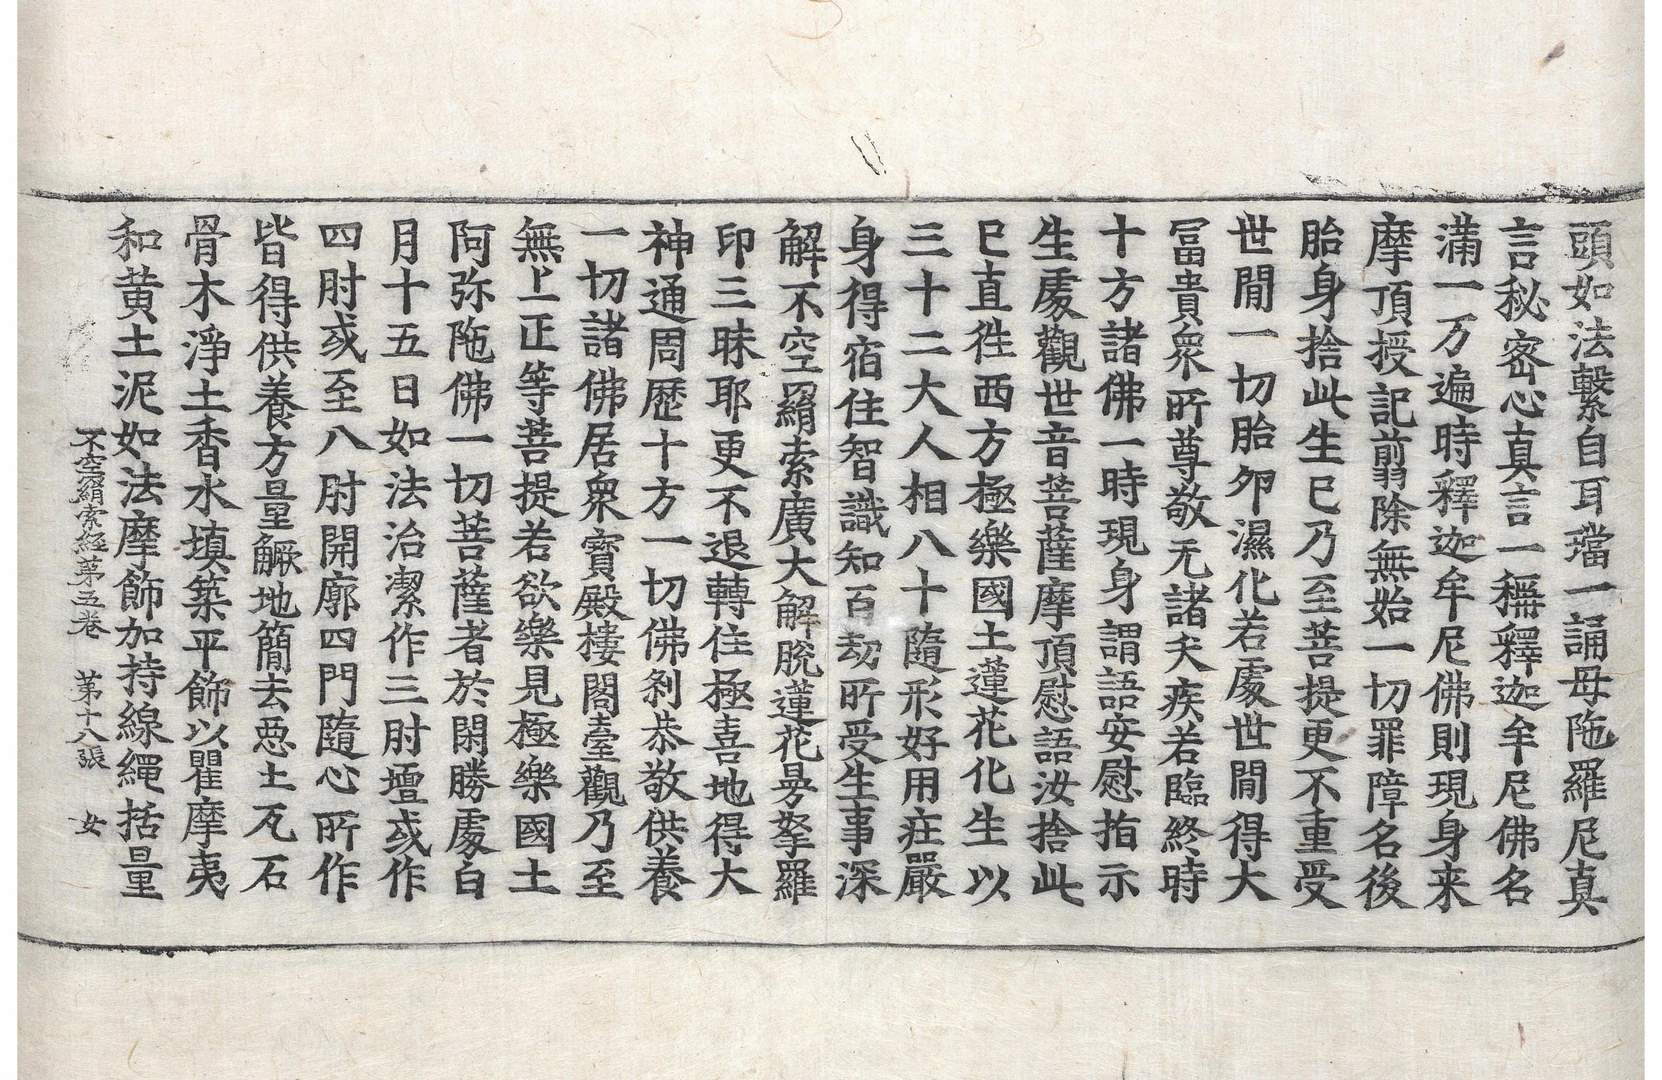 頭如法繫自耳璫一誦母陁羅尼真
言秘密心真言一稱釋迦牟尼佛名
滿一万遍時釋迦牟尼佛則現身来
摩頂授記前除無始一切罪障名後
胎身捨此生已乃至菩提更不重受
世間一切胎夘濕化若處世間得大
冨貴衆所尊敬无諸夭疾若臨終時
十方諸佛一時現身謂語安慰指示
生處觀世音菩薩摩頂慰語汝捨此
已直徃西方極樂國土蓮花化生以
三十二大人相八十隨形好用庄嚴
身得宿住智識知百劫所受生事深
解不空羂索廣大解脫蓮花曼拏羅
印三昧耶更不退轉住極喜地得大
神通周歷十方一切佛刹恭敬供養
一切諸佛居衆寶殿樓閣臺觀乃至
無上正等菩提若欲樂見極樂國土
阿弥陁佛一切菩薩者於閑勝處白
月十五日如法治潔作三肘壇或作
四肘或至八肘開廓四門隨心所作
皆得供養方量𣃁地簡去惡土瓦石
骨木淨土香水填築平飾以瞿摩夷
和黄土泥如法摩飾加持線繩括量
不空羂索経第五卷　第十八張　女